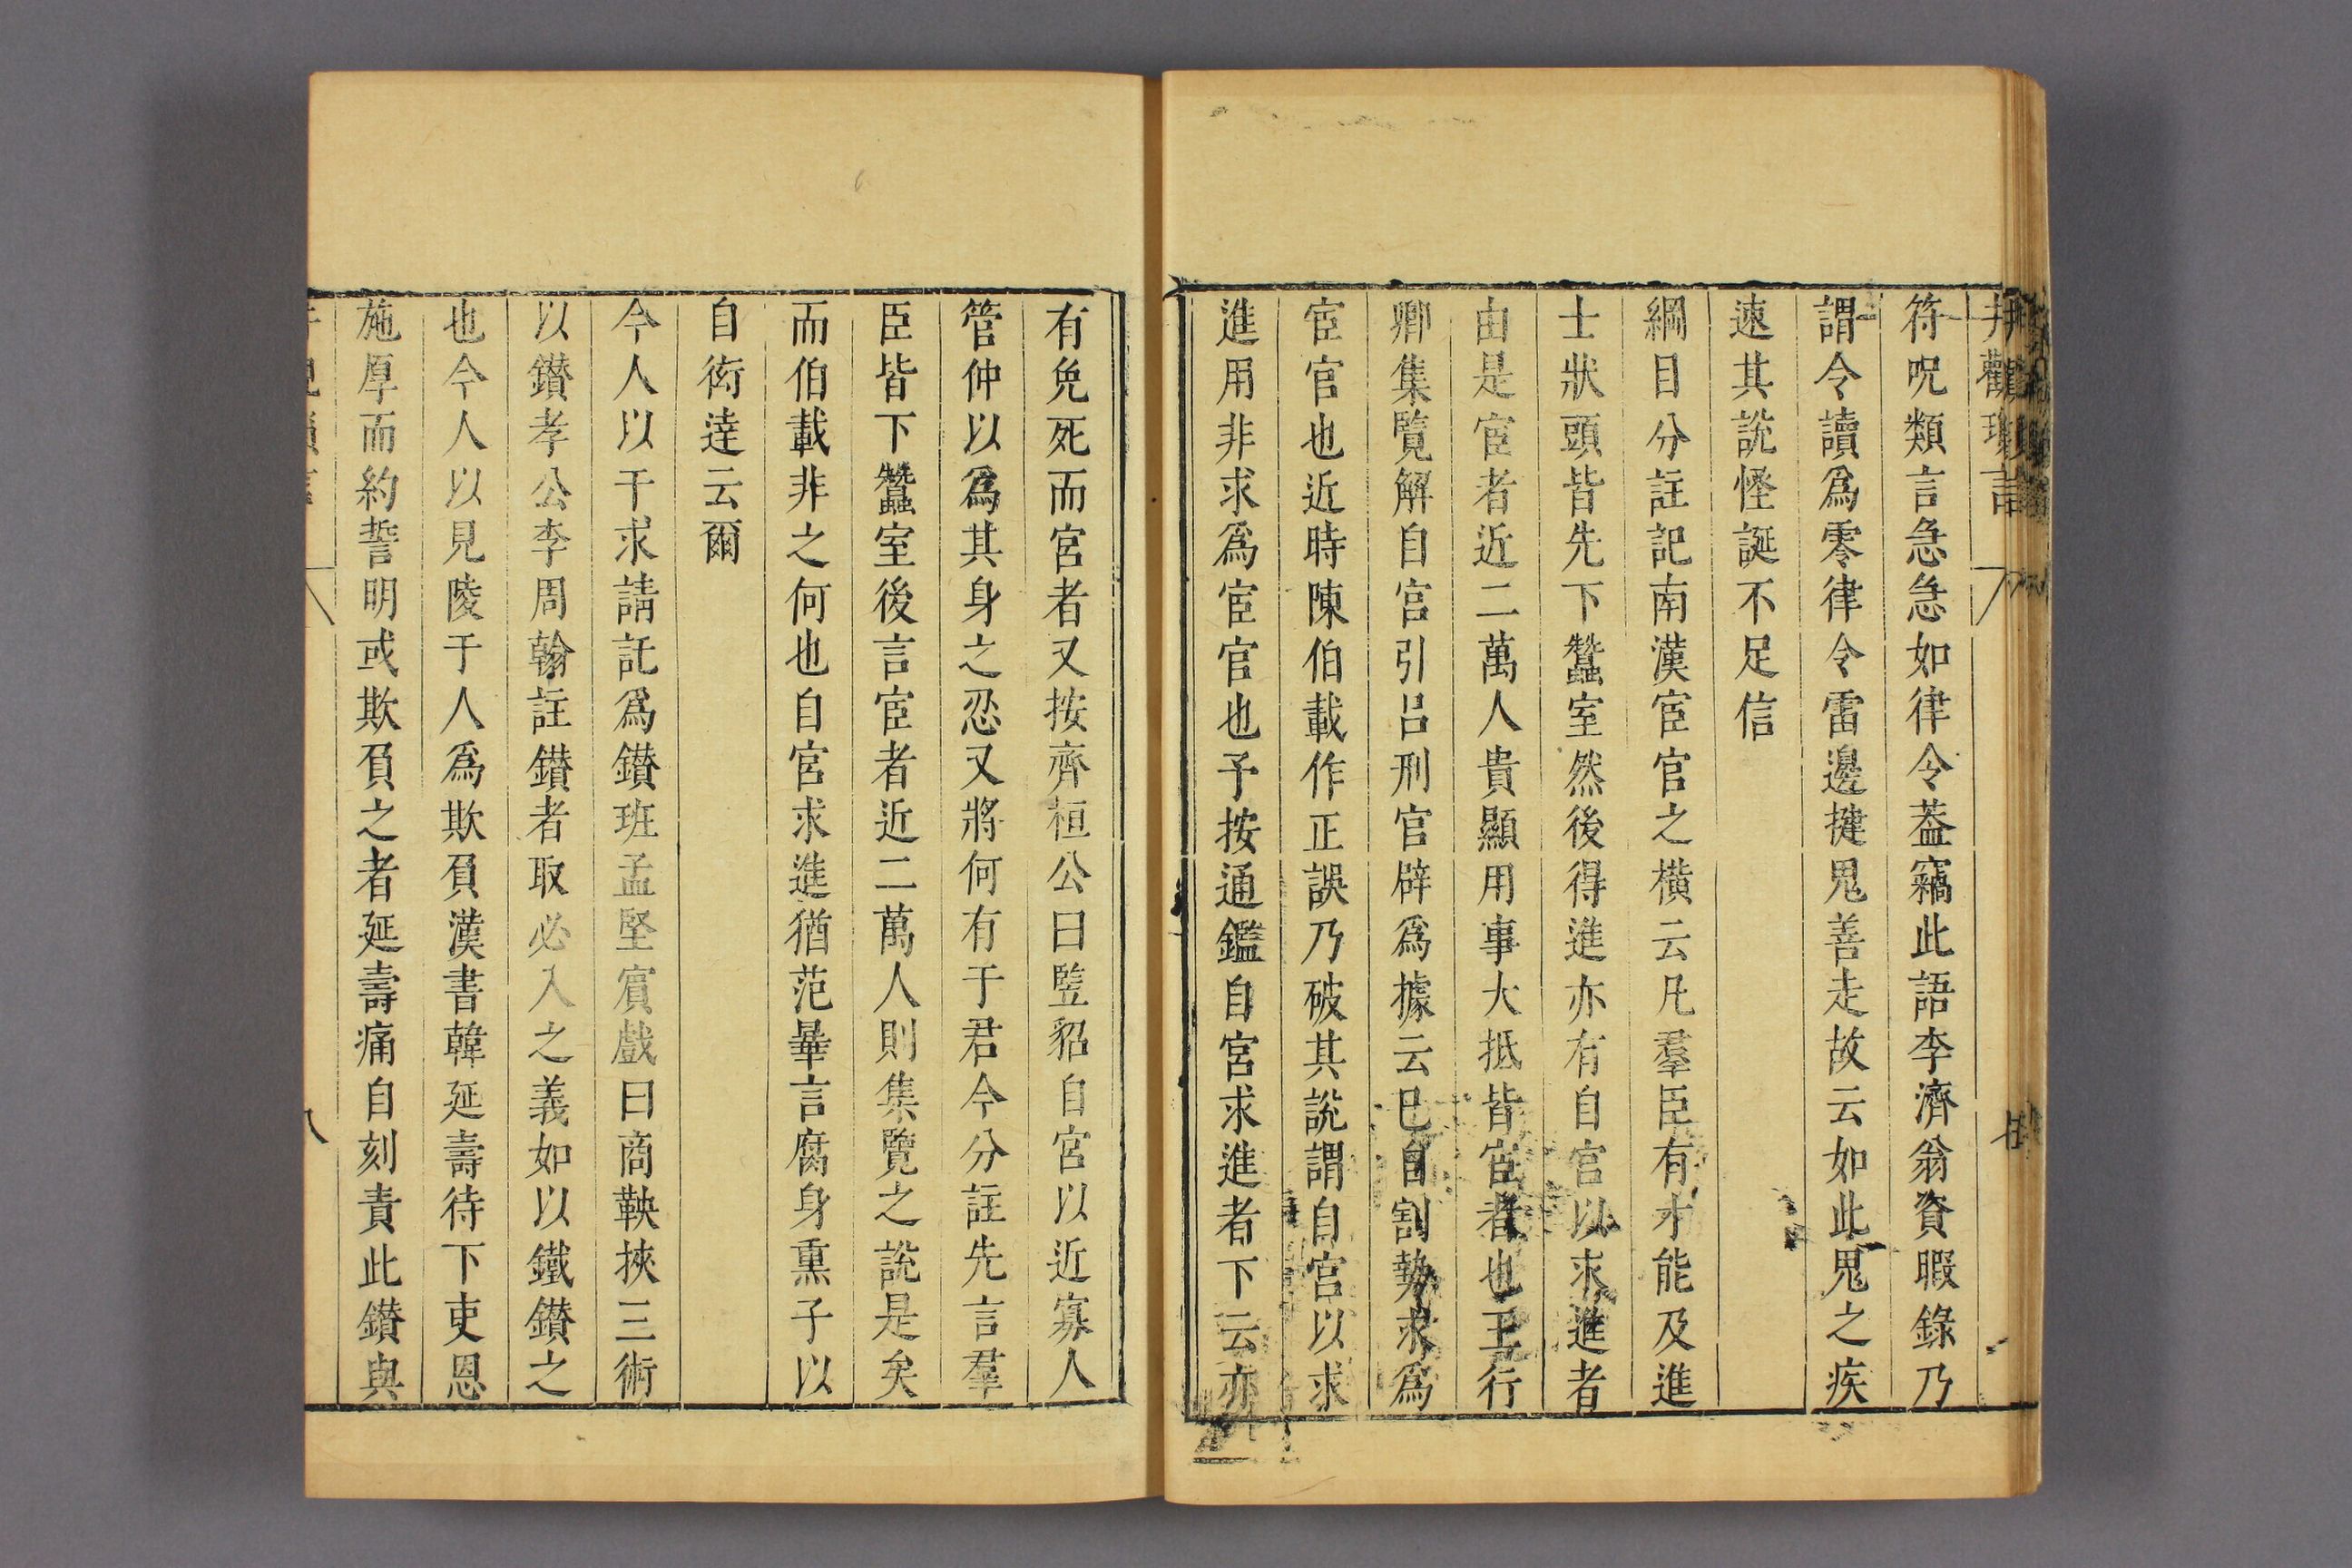 井觀瑣言
符呪類言急急如律令葢竊此語李濟翁資暇錄乃
謂令讀爲零律令雷邊揵鬼善走故云如此鬼之疾
速其說怪誕不足信
綱目分註記南漢宦官之橫云凡羣臣有才能及進
士狀頭皆先下蠶室然後得進亦有自宮以求進者
由是宦者近二萬人貴顯用事大抵皆宦者也王行
卿集覽解自宮引呂刑官辟爲據云巳自割勢求爲
宦官也近時陳伯載作正誤乃破其說謂自宮以求
進用非求爲宦官也予按通鑑自宮求進者下云亦
有免死而宮者又按齊桓公曰豎貂自宮以近寡人
管仲以爲其身之忍又將何有于君今分註先言羣
臣皆下蠶室後言宦者近二萬人則集覽之說是矣
而伯載非之何也自宮求進猶范曅言腐身熏子以
自衒達云爾
今人以干求請託爲鑚班孟堅賓戲曰商鞅挾三術
以鑚孝公李周翰註鑚者取必入之義如以鐵鑚之
也今人以見陵于人爲欺負漢書韓延壽待下吏恩
施厚而約誓明或欺負之者延壽痛自刻責此鑚與
八